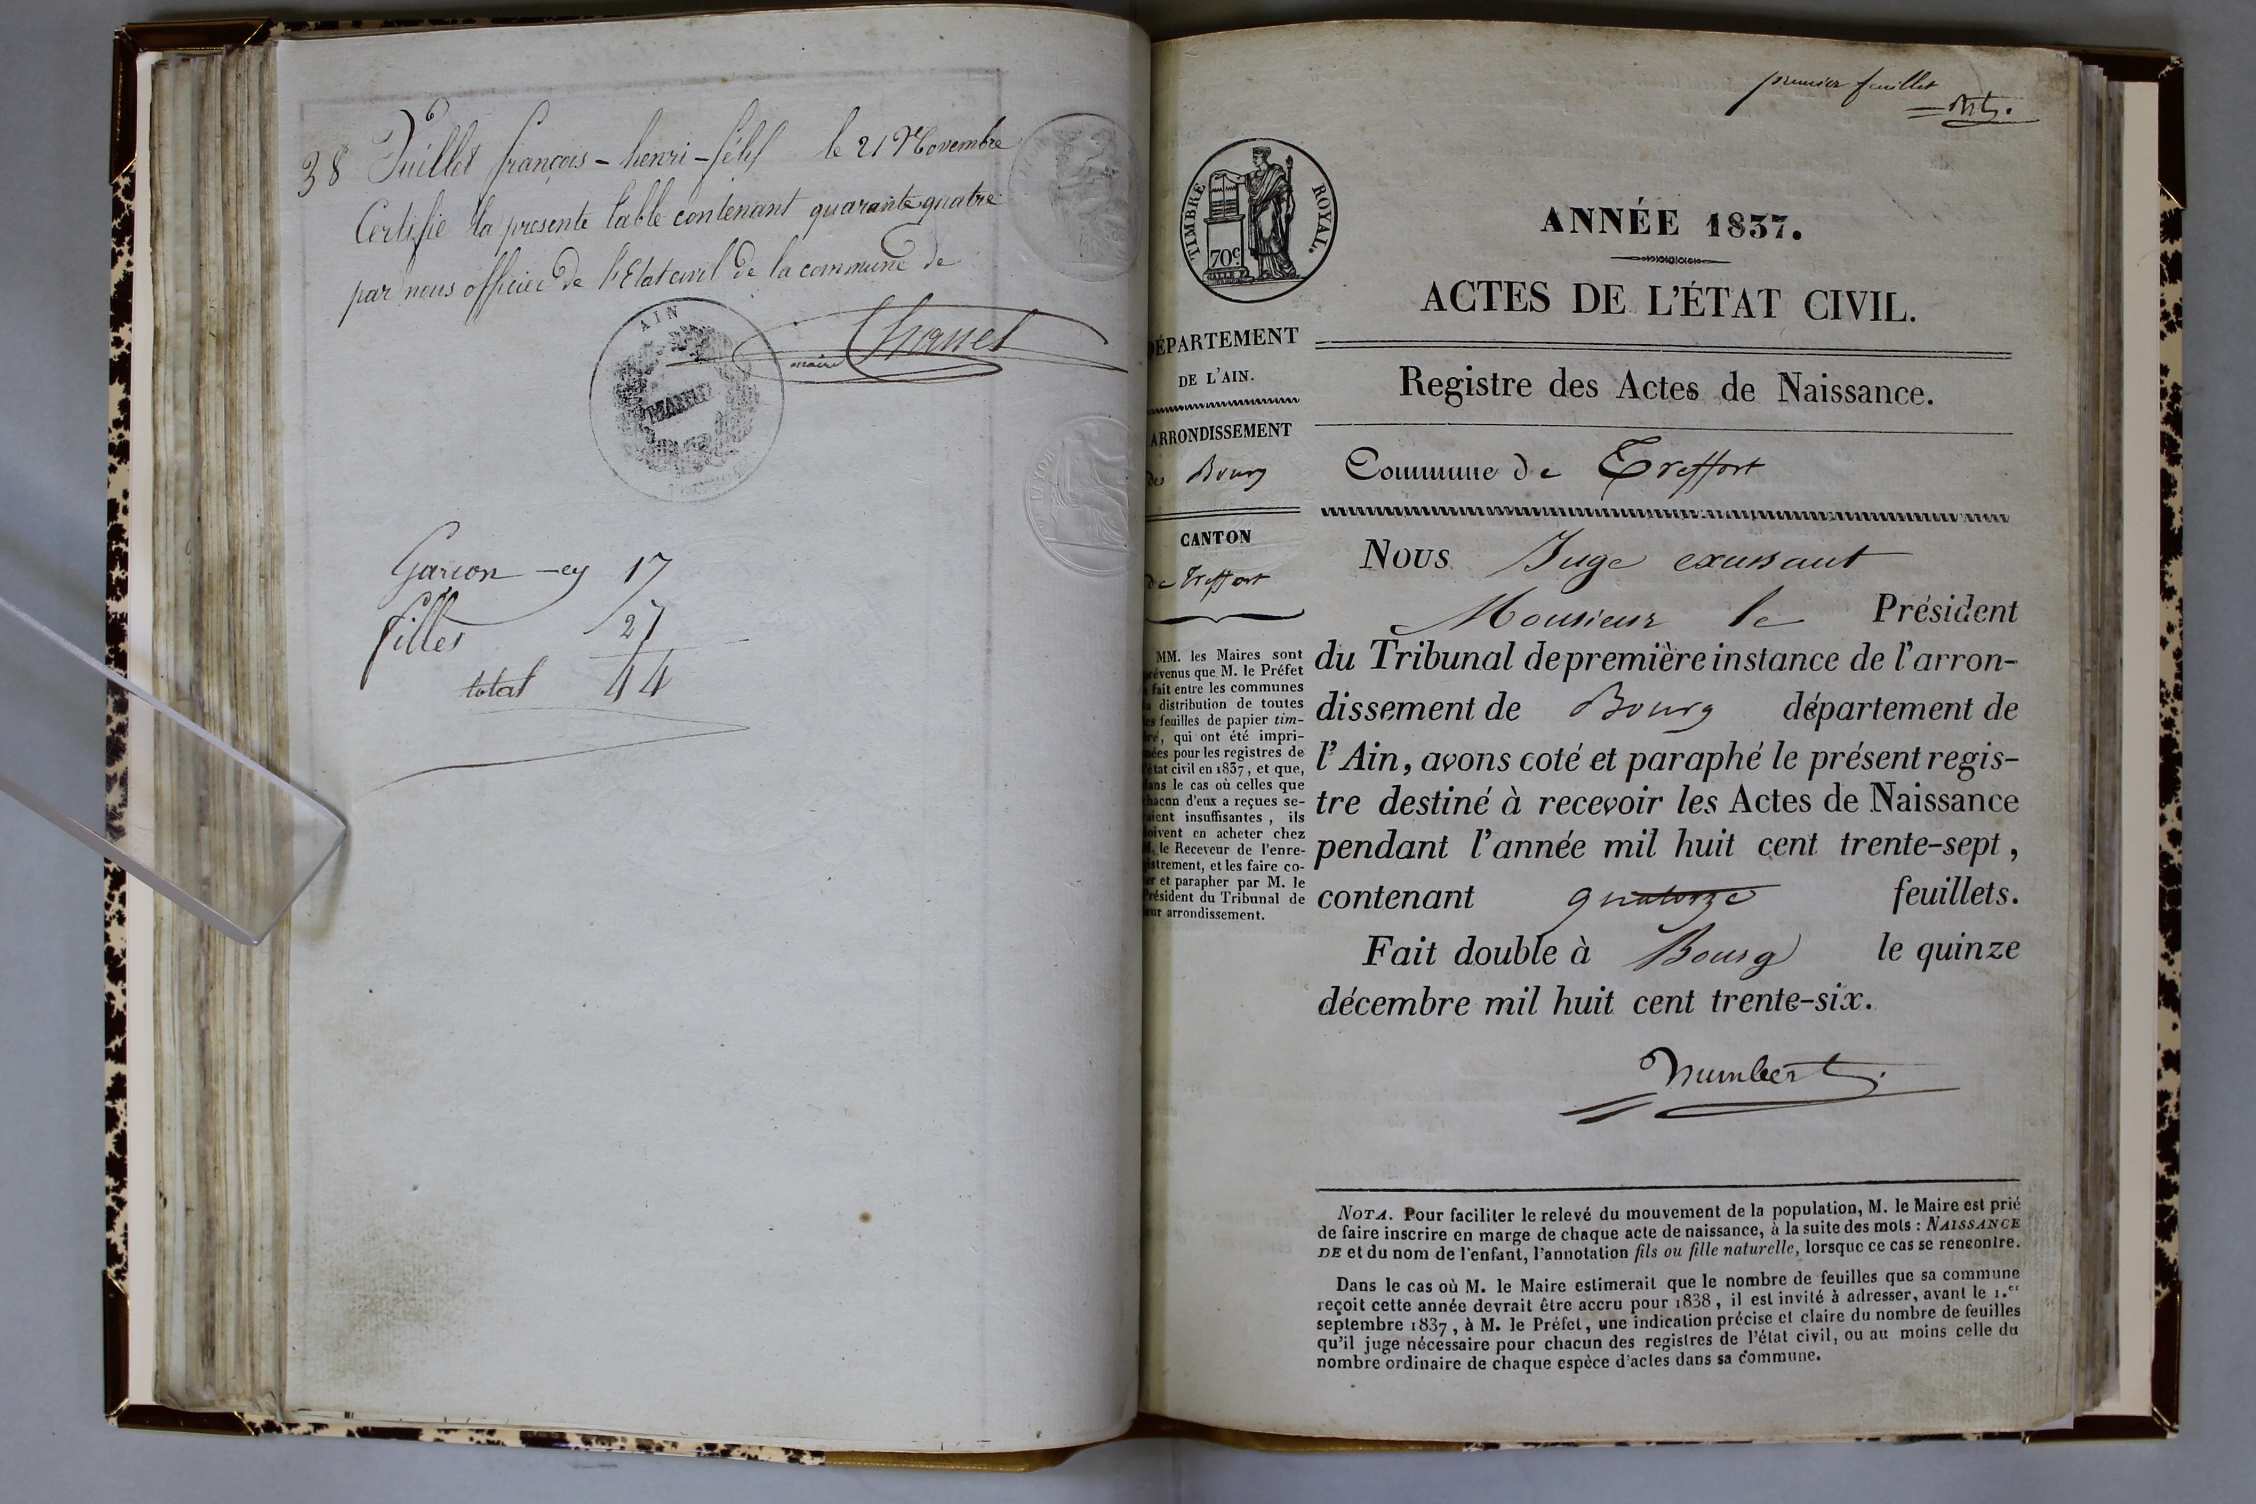 38 Juillet françois - henri - félix le 21 Novembre
Certifié la presente table contenant quarante quatre
par nous officier de l'Etat civil de la commune de
maire Chanel
AIN
MAIRIE
Garcon - cy 17
filles 27
total 44
premier feuillet
TIMBRE ROYAL.
70c
ANNÉE 1837.
ACTES DE L'ÉTAT CIVIL.
Registre des Actes de Naissance.
Commune de Treffort
DÉPARTEMENT
DE L'AIN.
ARRONDISSEMENT
de Bourg
CANTON
de Treffort
MM. les Maires sont
prévenus que M. le Préfet
a fait entre les communes
la distribution de toutes
les feuilles de papier tim-
bré, qui ont été impri-
mées pour les registres de
l'état civil en 1837, et que,
dans le cas où celles que
chacun d'eux a reçues se-
raient insuffisantes, ils
doivent en acheter chez
M. le Receveur de l'enre-
gistrement, et les faire co-
ter et parapher par M. le
Président du Tribunal de
leur arrondissement.
Nous Juge exerssant
Monsieur le Président
du Tribunal de première instance de l'arron-
dissement de Bourg département de
l'Ain, avons coté et paraphé le présent regis-
tre destiné à recevoir les Actes de Naissance
pendant l'année mil huit cent trente-sept,
contenant quatorze feuillets.
Fait double à Bourg le quinze
décembre mil huit cent trente-six.
NOTA. Pour faciliter le relevé du mouvement de la population, M. le Maire est prié
de faire inscrire en marge de chaque acte de naissance, à la suite des mots : NAISSANCE
DE et du nom de l'enfant, l'annotation fils ou fille naturelle, lorsque ce cas se rencontre.
Dans le cas où M. le Maire estimerait que le nombre de feuilles que sa commune
reçoit cette année devrait être accru pour 1838, il est invité à adresser, avant le 1.er
septembre 1837, à M. le Préfet, une indication précise et claire du nombre de feuilles
qu'il juge nécessaire pour chacun des registres de l'état civil, ou au moins celle du
nombre ordinaire de chaque espèce d'actes dans sa commune.